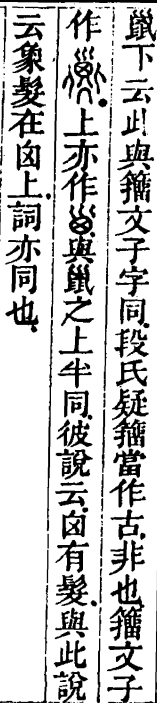 巤下云此與籒文子字同、段氏疑籒當作古、非也、籒文子
作、上亦作、與巤之上半同、彼說云、囟有髮、與此說
云象髮在囟上、詞亦同也、